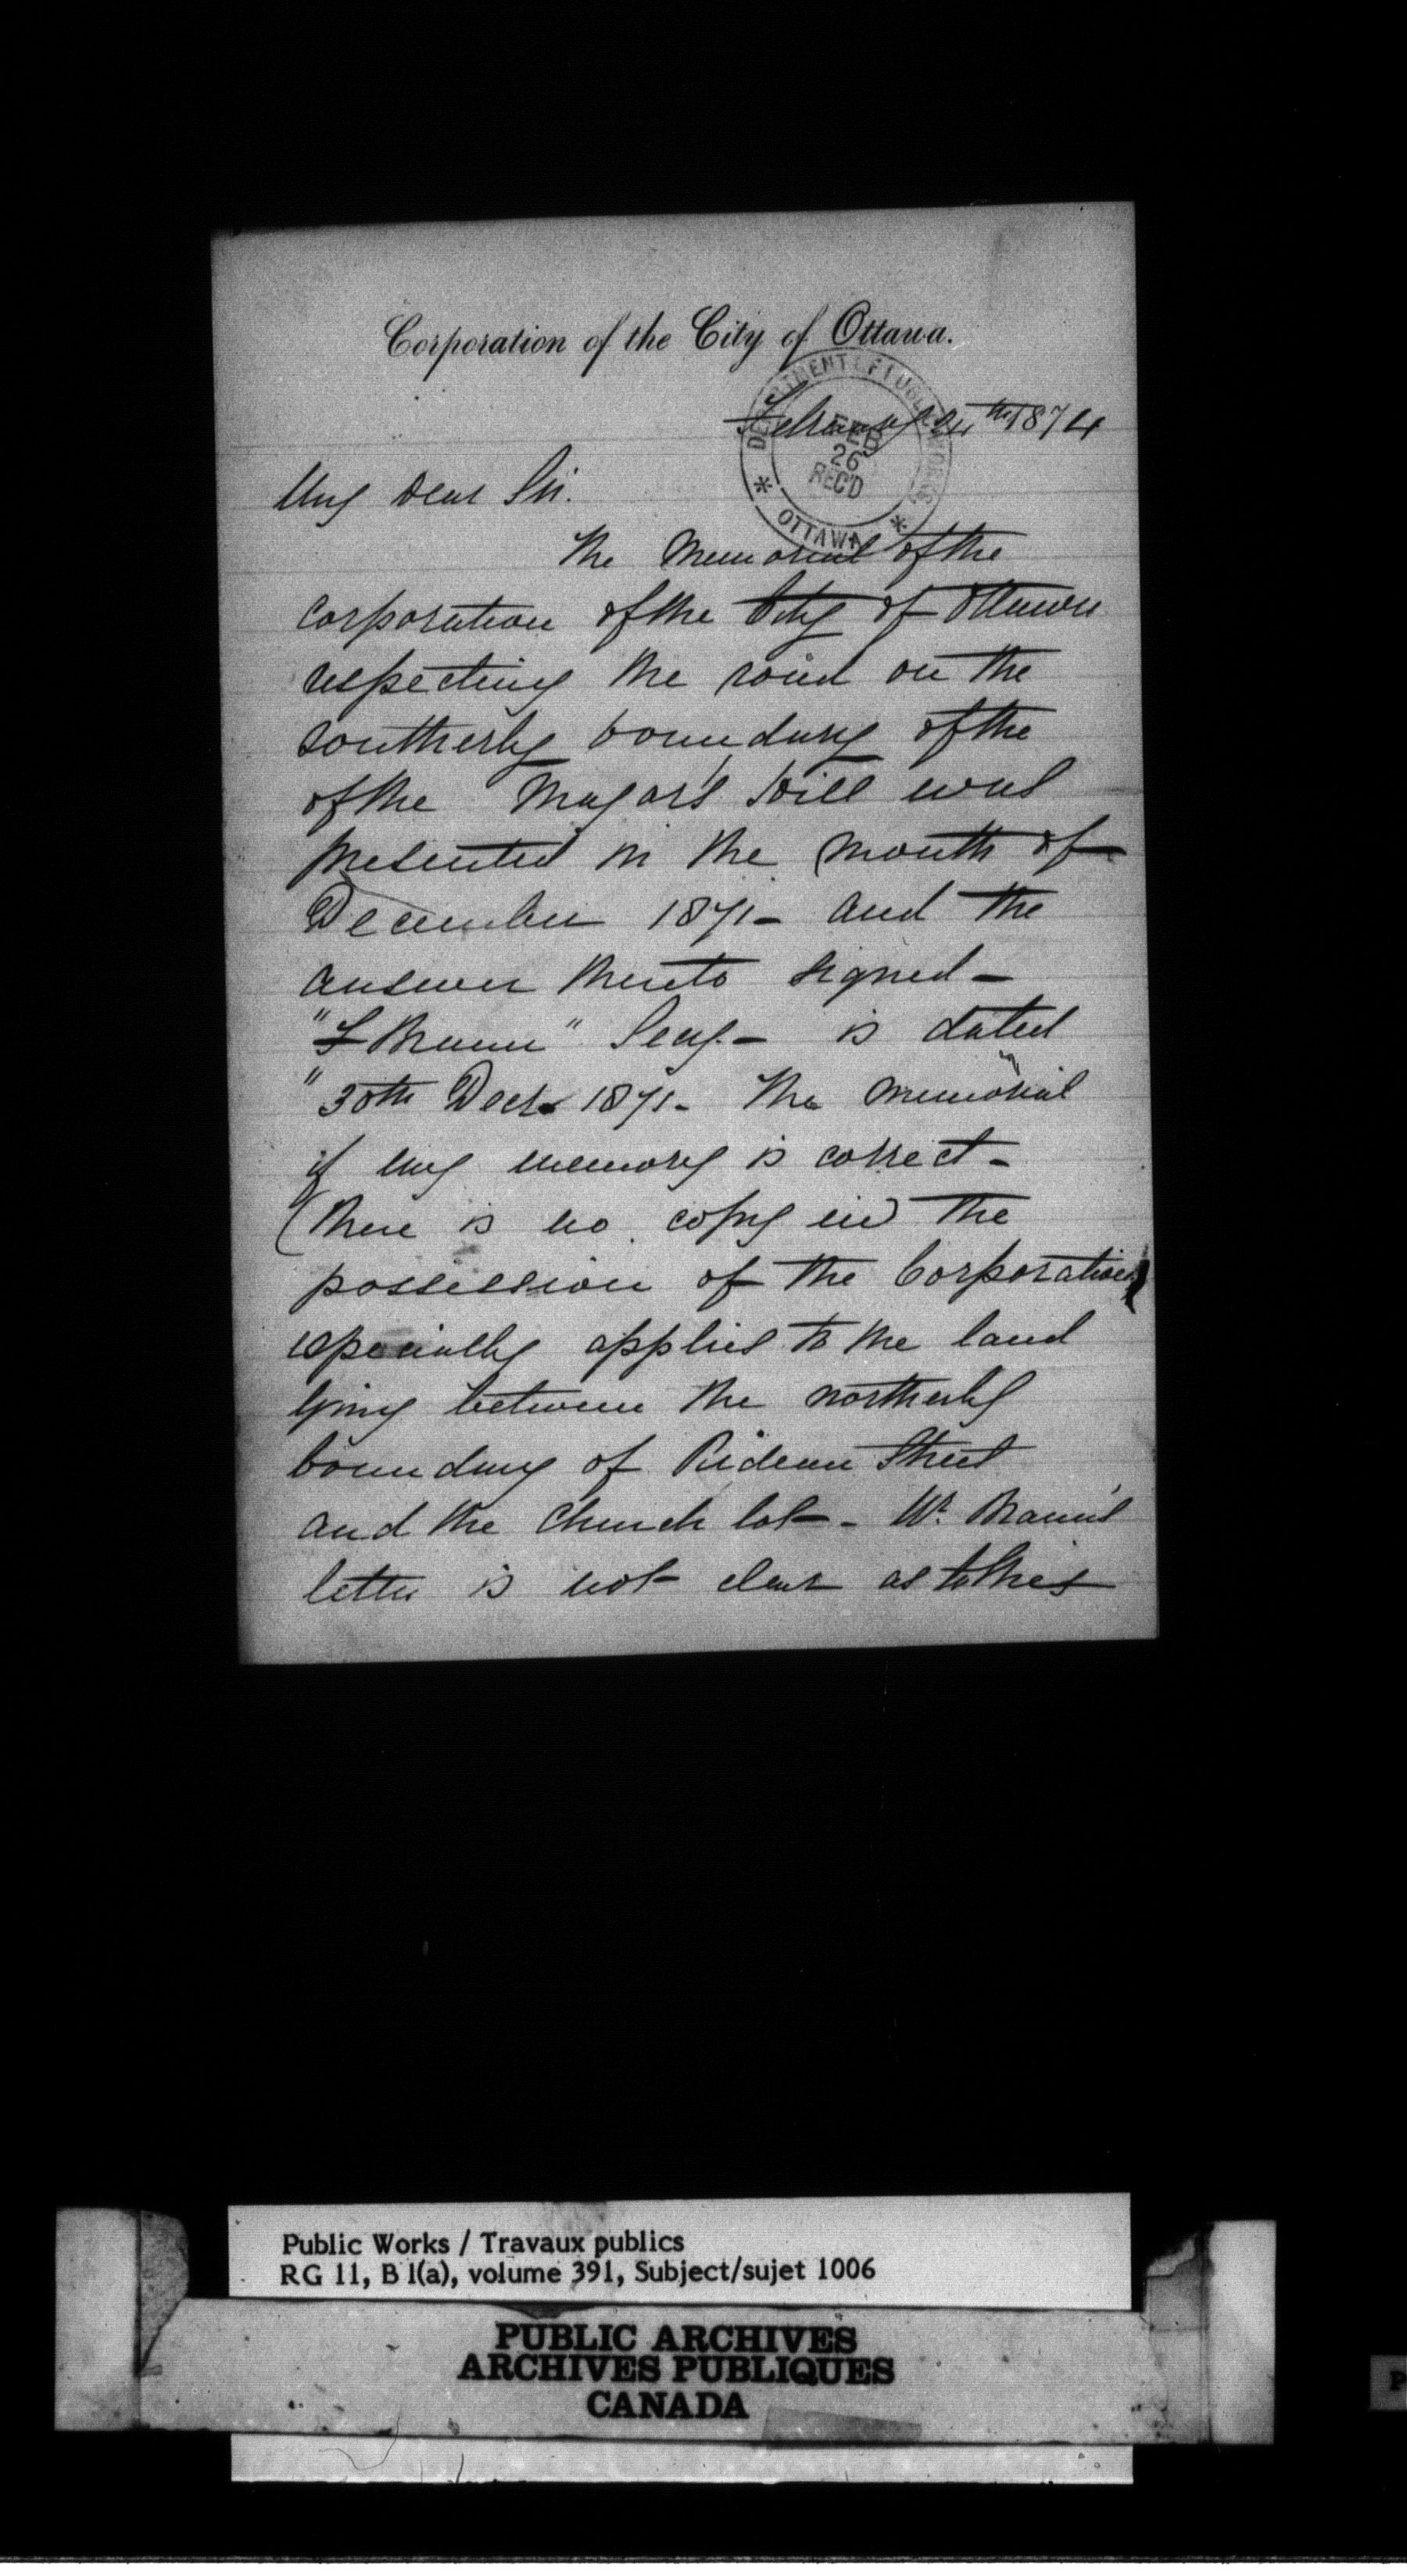 Corporation of the City of Ottawa.
February 24th 1874
DEPARTMENT OF PUBLIC WORKS
FEB
26
REC'D
* OTTAWA *
My Dear Sir.
The Memorial of the
corporation of the City of Ottawa
respecting the road on the
southerly boundary of the
of the Major's Hill was
presented in the month of
December 1871 - and the
answer thereto signed -
"F Braun" Secy. - is dated
"30th Decr. 1871 - The memorial
if my memory is correct -
(there is no copy in the
possession of the Corporation)
especially applied to the land
lying between the northerly
boundary of Rideau Street
and the Church lot - Mr. Braun's
letter is not clear as to this
Public Works / Travaux publics
RG 11, B 1(a), volume 391, Subject/sujet 1006
PUBLIC ARCHIVES
ARCHIVES PUBLIQUES
CANADA